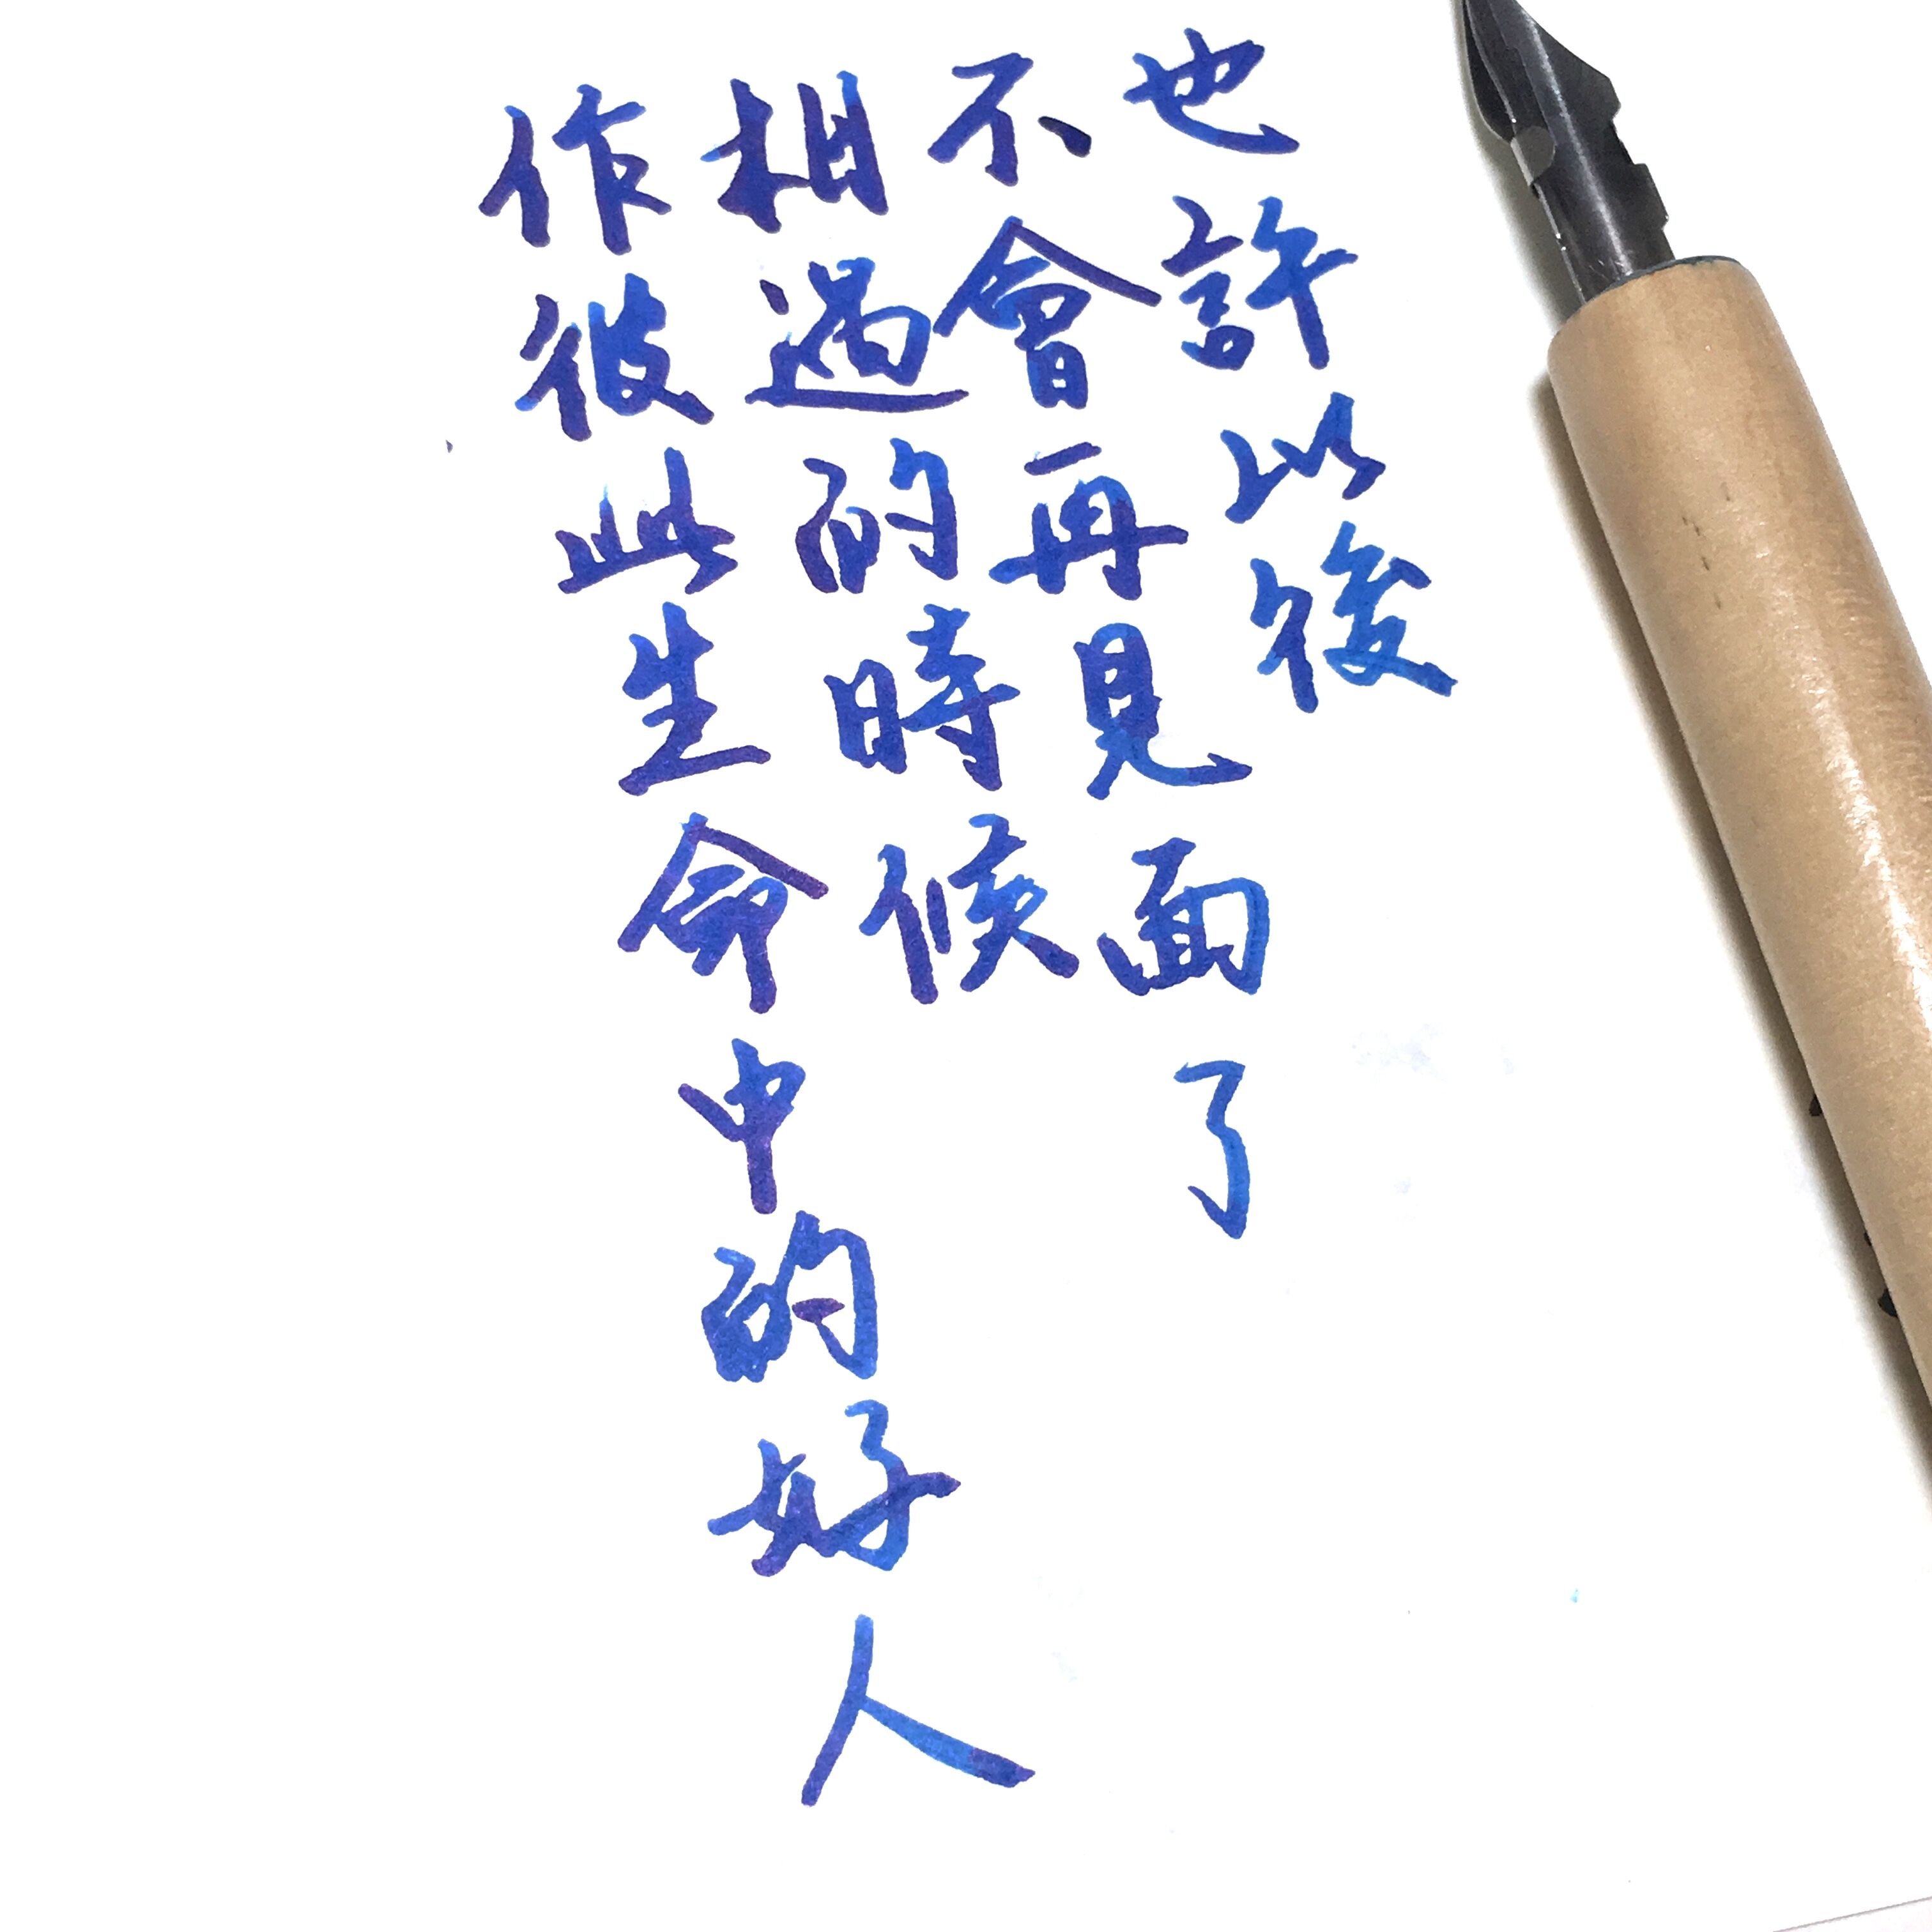 也許以後
不會再見面了
相遇的時候
作彼此生命中的好人